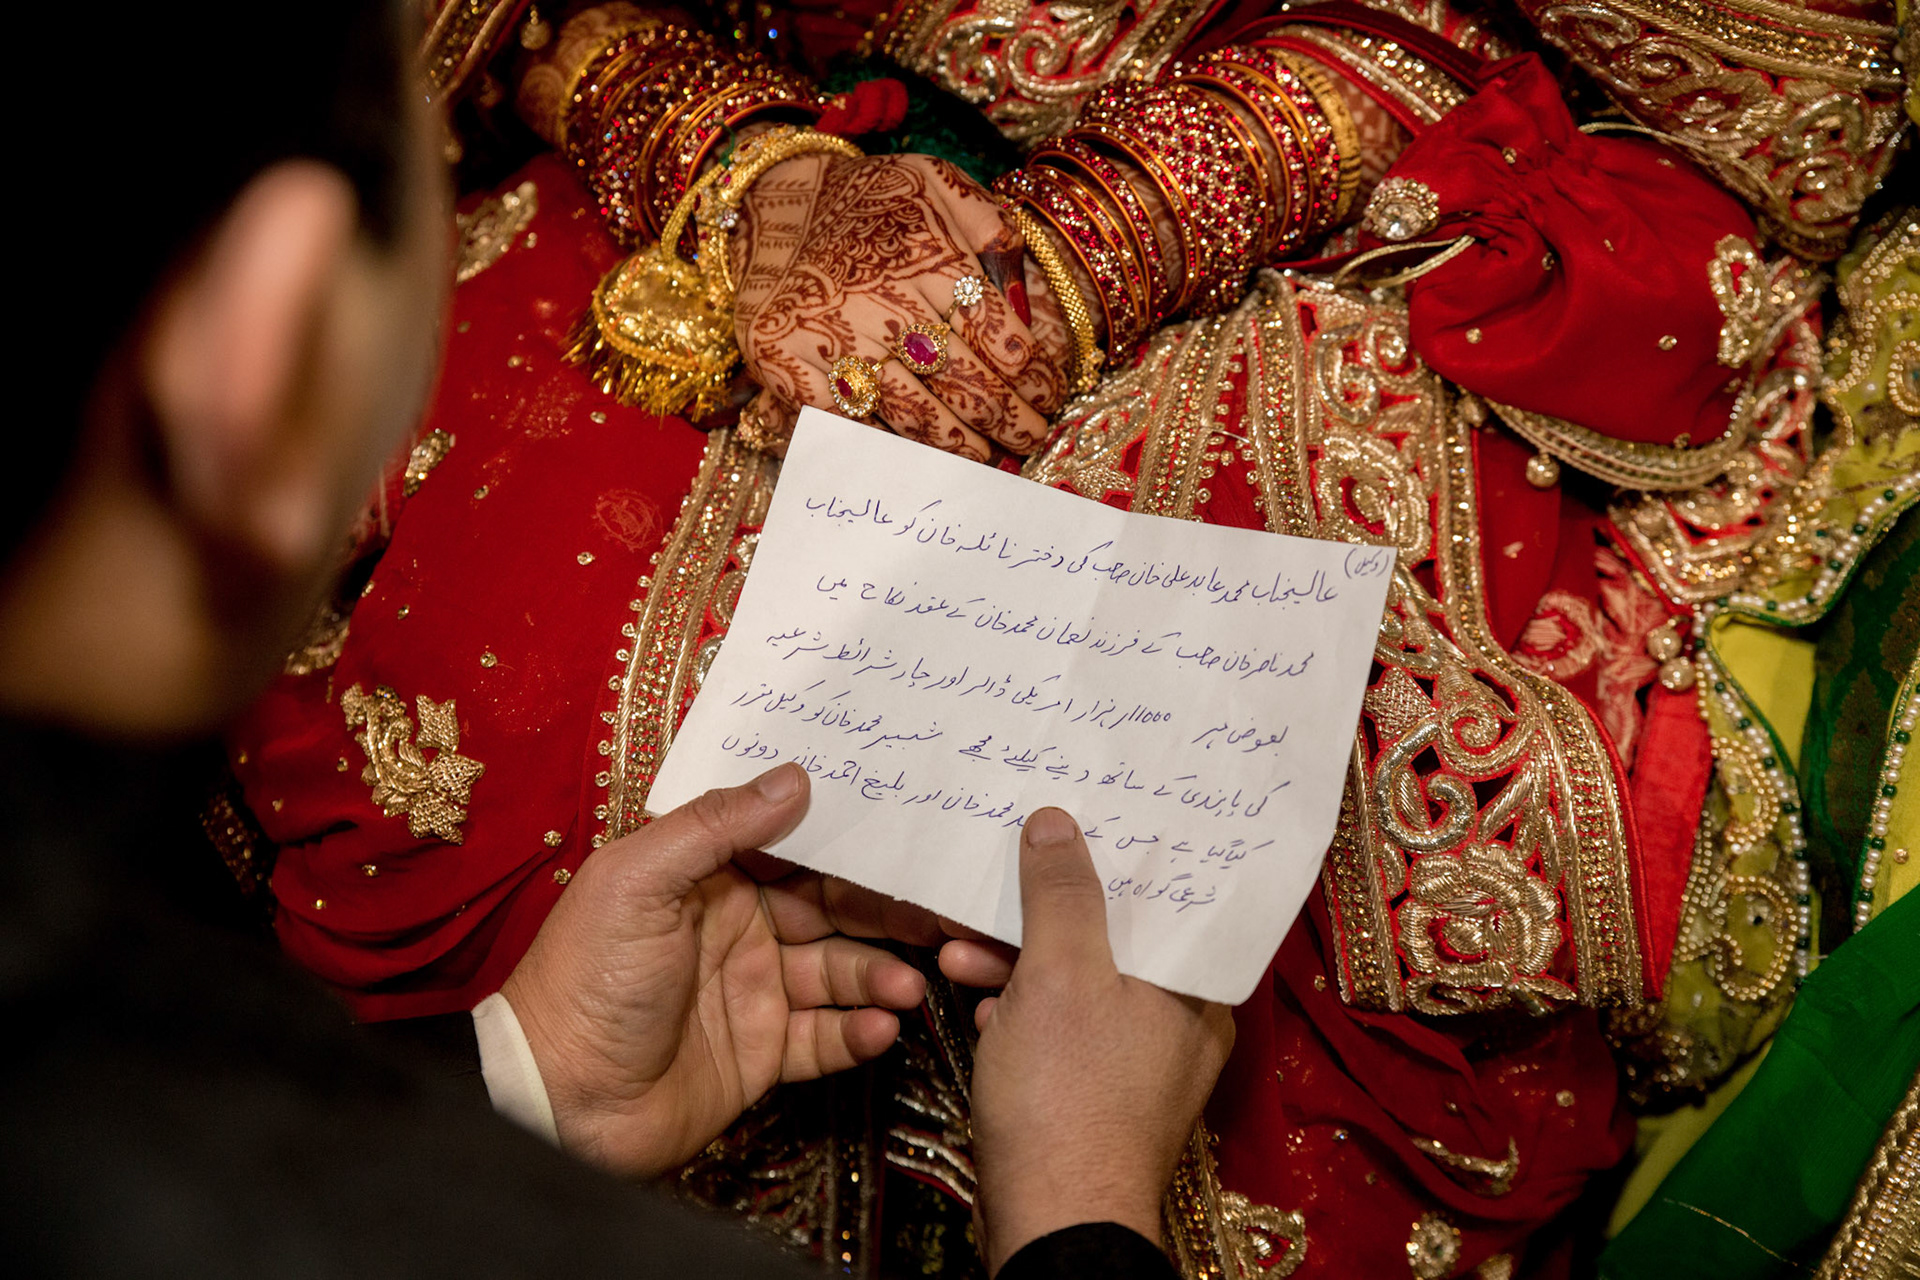 (وکیل)
عالیجناب محمد عابد علی خان صاحب کی دختر نائلہ خان کو عالیجناب
محمد ناصر خان صاحب کے فرزند نعمان محمد خان کے عقد نکاح میں
بعوض مہر 11000ر ہزار امریکی ڈالر اور چار شرائط شرعیہ
کی پابندی کے ساتھ دینے کیلئے مجھے شبیر محمد خان کو وکیل مقرر
کیا گیا ہے جس کے محمد خان اور بلیغ احمد خان دونوں
شرعی گواہ ہیں